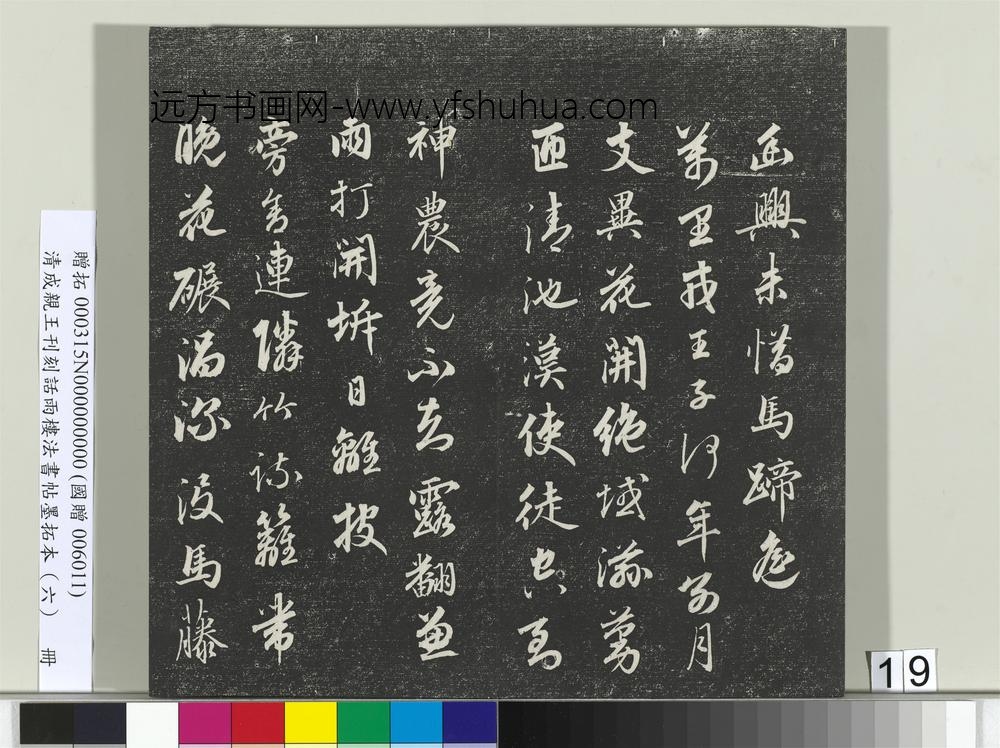 远方书画网-www.yfshuhua.com
幽興未惜馬蹄遙
萬里戎王子何年別月
支異花開絕域滋蔓
匝清池漢使徒空到
神農竟不知露翻兼
雨打開坼日離披
旁舍連隣竹疏籬帶
晚花碾渦深沒馬藤
贈拓 000315N000000000 (國贈 006011)
清成親王刊刻話雨樓法書帖墨拓本(六) 冊
19